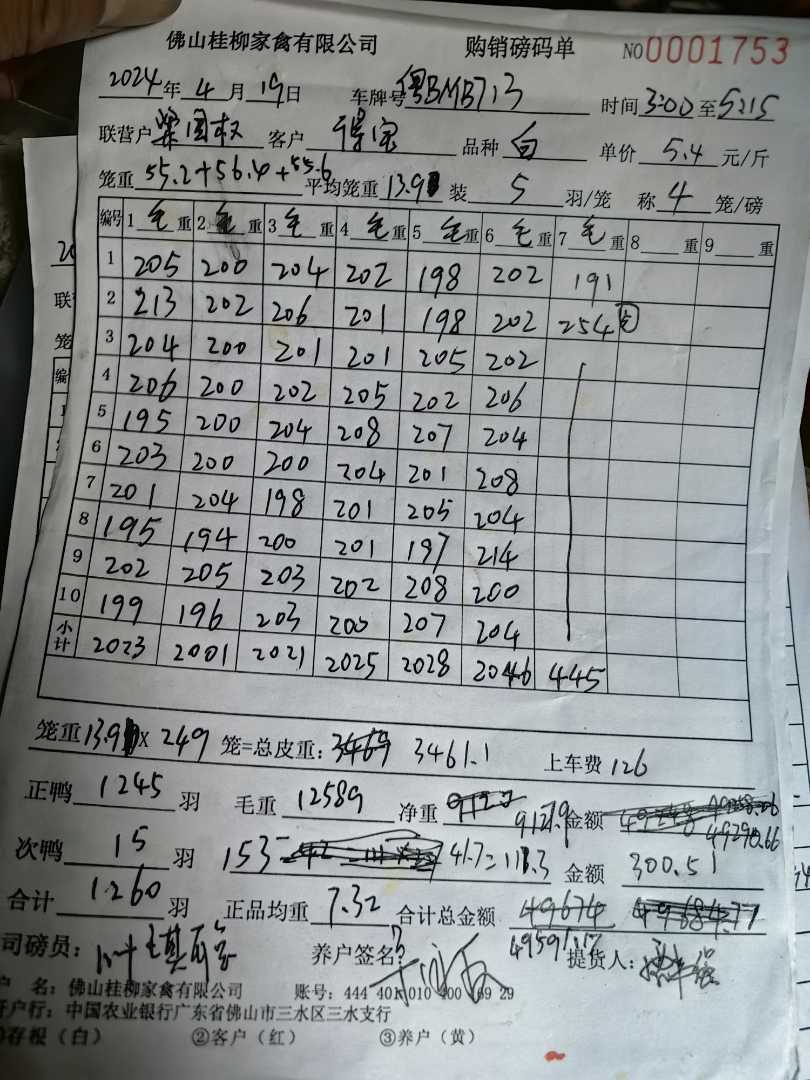 佛山桂柳家禽有限公司 购销磅码单 NO0001753
2024年4月19日 车牌号粤BMB713 时间3:00至5:15
联营户梁国权 客户得宝 品种白 单价5.4元/斤
笼重55.2+56.4+55.6平均笼重13.9装5羽/笼 称4笼/磅
编号 1毛重 2毛重 3毛重 4毛重 5毛重 6毛重 7毛重 8重 9重
1 205 200 204 202 198 202 191
2 213 202 206 201 198 202 254
3 204 200 201 201 205 202
4 206 200 202 205 202 206
5 195 200 204 208 207 204
6 203 200 200 204 201 208
7 201 204 198 201 205 204
8 195 194 200 201 197 214
9 202 205 203 202 208 200
10 199 196 203 200 207 204
小计 2023 2001 2021 2025 2028 2046 445
笼重13.9X249笼=总皮重:3469 3461.1 上车费126
正鸭1245羽 毛重12589净重9127.9金额49290.66
次鸭15羽 153- 41.7=111.3 金额300.51
合计1260羽 正品均重7.32合计总金额49674 49684.77
49591.17
司磅员: 养户签名: 提货人:
户 名:佛山桂柳家禽有限公司 账号:444 401 010 400 169 29
开户行:中国农业银行广东省佛山市三水区三水支行
①存根(白) ②客户(红) ③养户(黄)